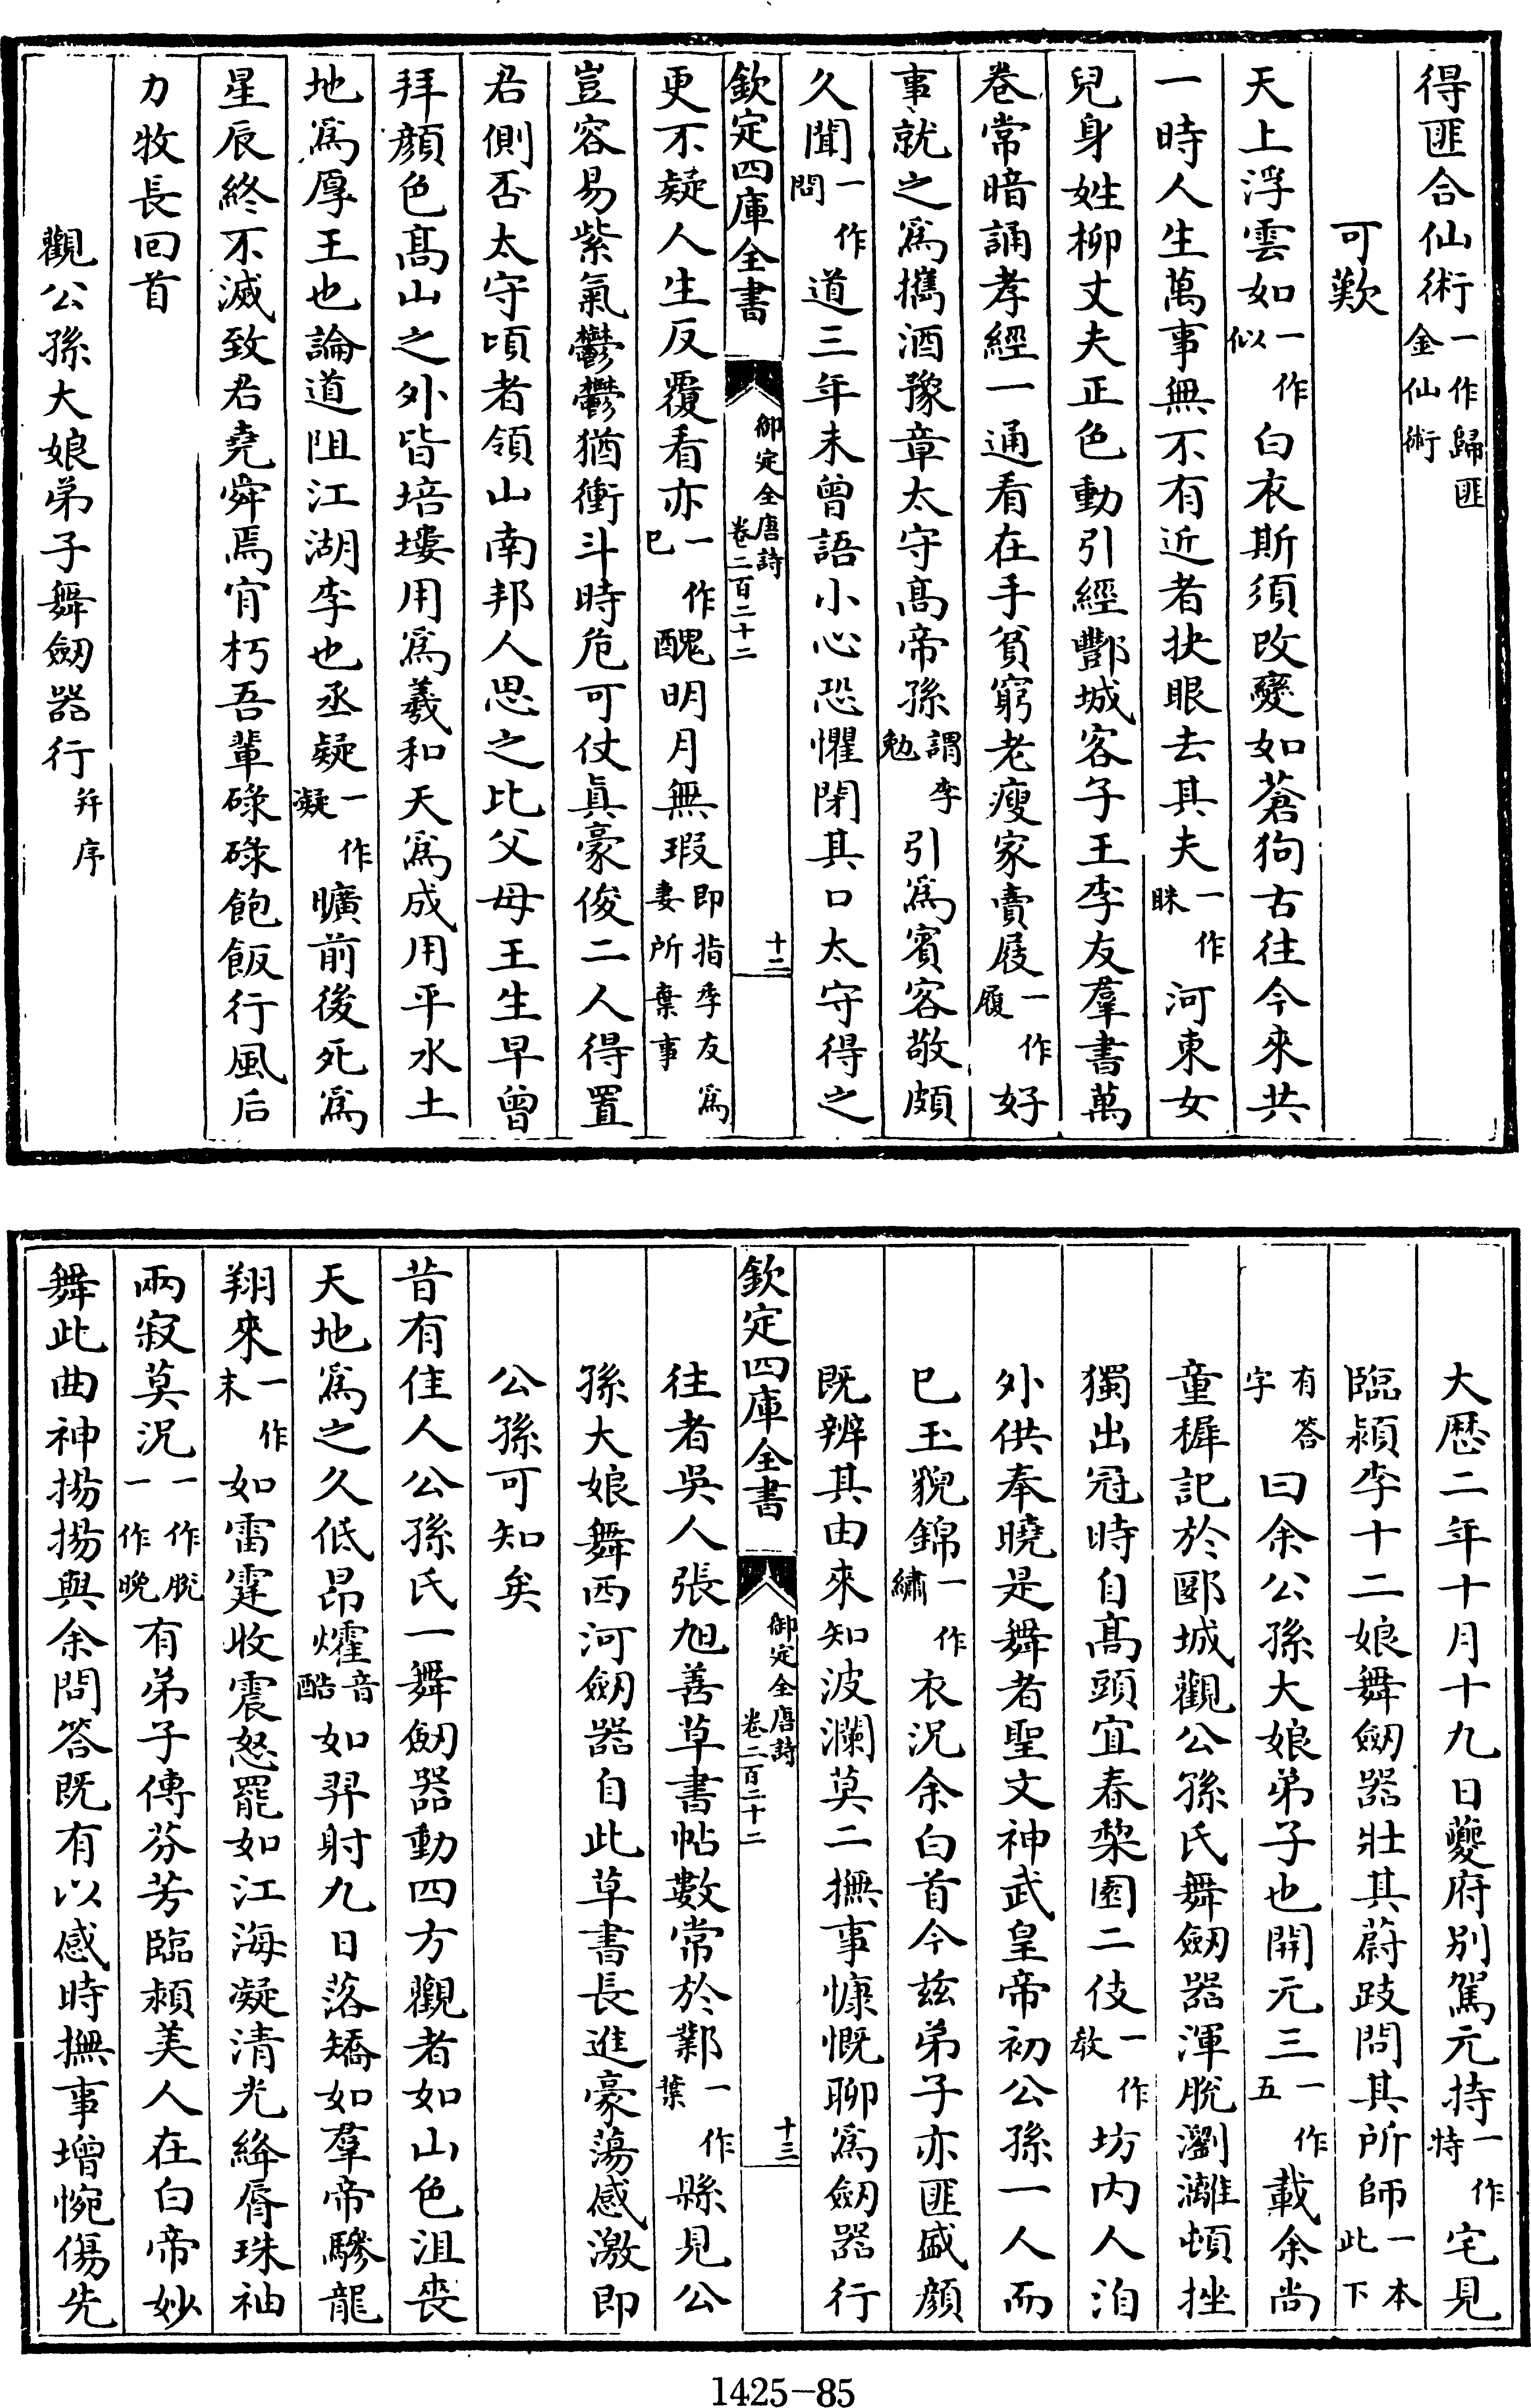 得匪合仙術一作歸匪金仙術
可歎
天上浮雲如一作似白衣斯須改變如蒼狗古往今來共
一時人生萬事無不有近者抉眼去其夫一作眯河東女
兒身姓柳丈夫正色動引經酆城客子王李友羣書萬
卷常暗誦孝經一通看在手貧窮老瘦家賣屐一作履好
事就之爲攜酒豫章太守髙帝孫謂李勉引爲賓客敬頗
久聞一作問道三年未曾語小心恐懼閉其口太守得之
欽定四庫全書 御定全唐詩卷二百二十二 十二
更不疑人生反覆看亦一作已醜明月無瑕即指季友爲妻所棄事
豈容易紫氣鬱鬱猶衝斗時危可仗真豪俊二人得置
君側否太守頃者領山南邦人思之比父母王生早曾
拜顔色髙山之外皆培塿用爲羲和天爲成用平水土
地爲厚王也論道阻江湖李也丞疑一作凝曠前後死爲
星辰終不滅致君堯舜焉肯朽吾輩碌碌飽飯行風后
力牧長回首
觀公孫大娘弟子舞劒器行并序
大歴二年十月十九日夔府别駕元持一作特宅見
臨潁李十二娘舞劒器壯其蔚跂問其所師一本此下
有答字曰余公孫大娘弟子也開元三一作五載余尚
童穉記於郾城觀公孫氏舞劒器渾脫瀏灕頓挫
獨出冠時自髙頭宜春棃園二伎一作教坊内人洎
外供奉曉是舞者聖文神武皇帝初公孫一人而
已玉貌錦一作繡衣況余白首今兹弟子亦匪盛顔
既辨其由來知波瀾莫二撫事慷慨聊爲劒器行
欽定四庫全書 御定全唐詩卷二百二十二 十三
往者吳人張旭善草書帖數常於鄴一作葉縣見公
孫大娘舞西河劒器自此草書長進豪蕩感激即
公孫可知矣
昔有佳人公孫氏一舞劒器動四方觀者如山色沮喪
天地爲之久低昂㸌音酷如羿射九日落矯如羣帝驂龍
翔來一作末如雷霆收震怒罷如江海凝清光絳脣珠袖
兩寂莫況一作脫一作晚有弟子傳芬芳臨潁美人在白帝妙
舞此曲神揚揚與余問答既有以感時撫事增惋傷先
1425-85